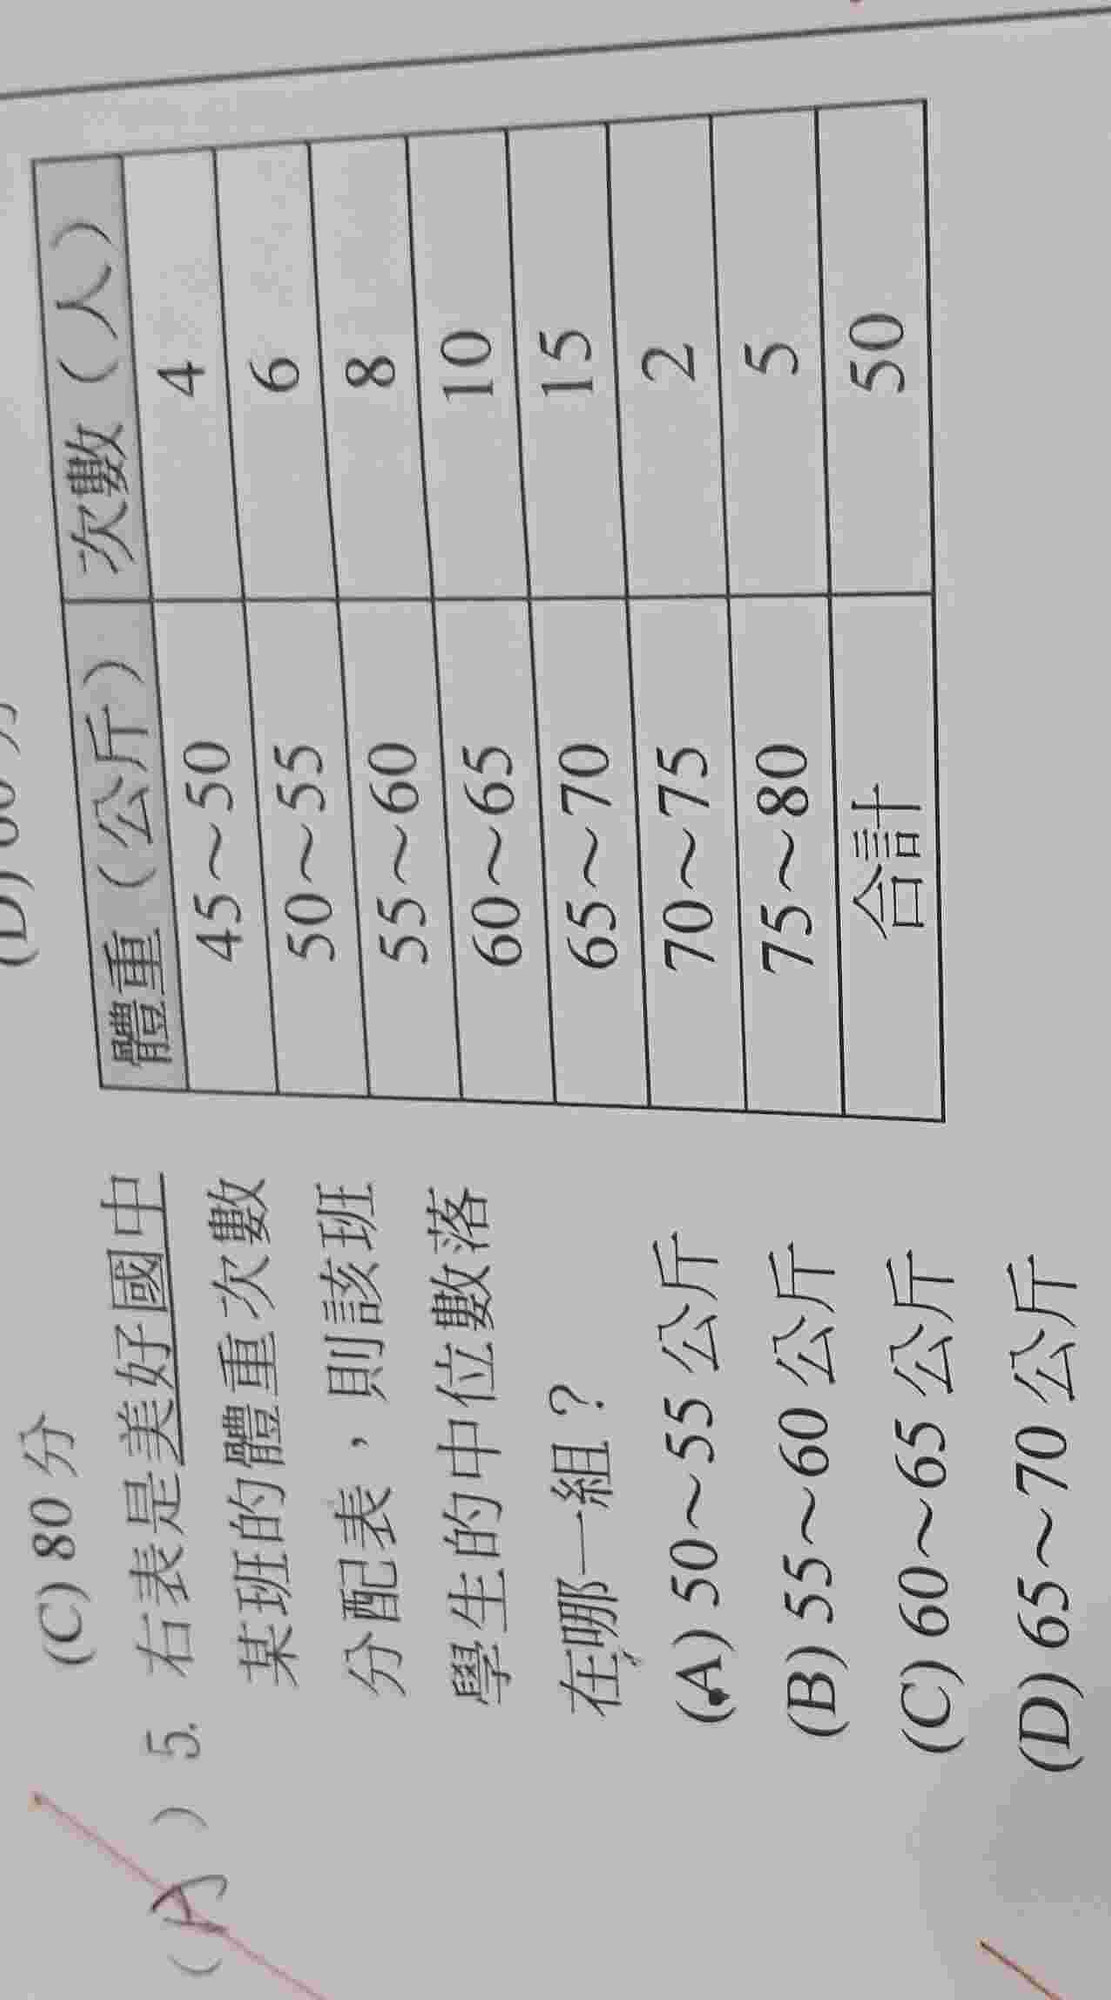 (C) 80 分
(A) 5. 右表是美好國中
某班的體重次數
分配表，則該班
學生的中位數落
在哪一組？
(A) 50～55 公斤
(B) 55～60 公斤
(C) 60～65 公斤
(D) 65～70 公斤
體重（公斤） 次數（人）
45～50 4
50～55 6
55～60 8
60～65 10
65～70 15
70～75 2
75～80 5
合計 50